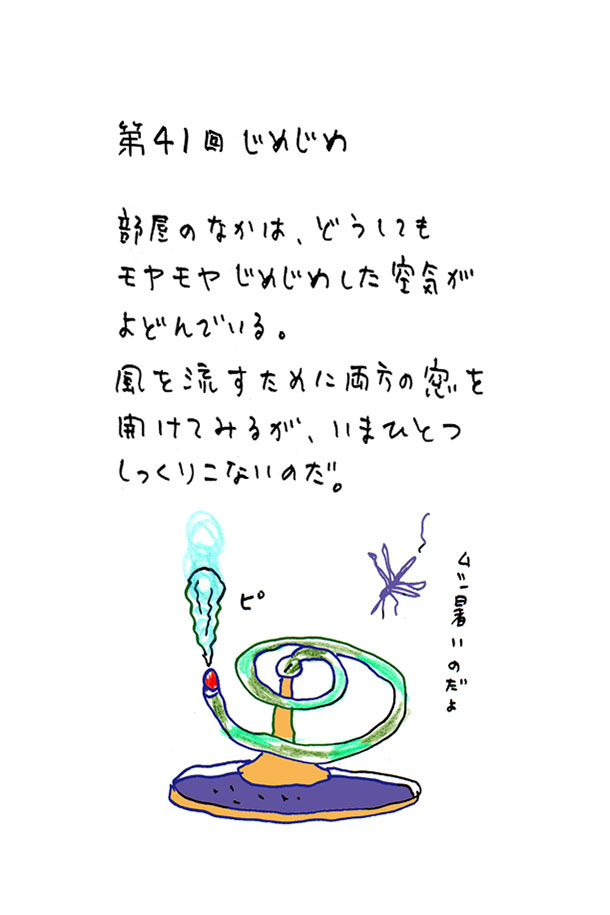 第41回 じめじめ
部屋のなかは、どうしても
モヤモヤじめじめした空気が
よどんでいる。
風を流すために両方の窓を
開けてみるが、いまひとつ
しっくりこないのだ。
ピ
ムシ暑いのだよ